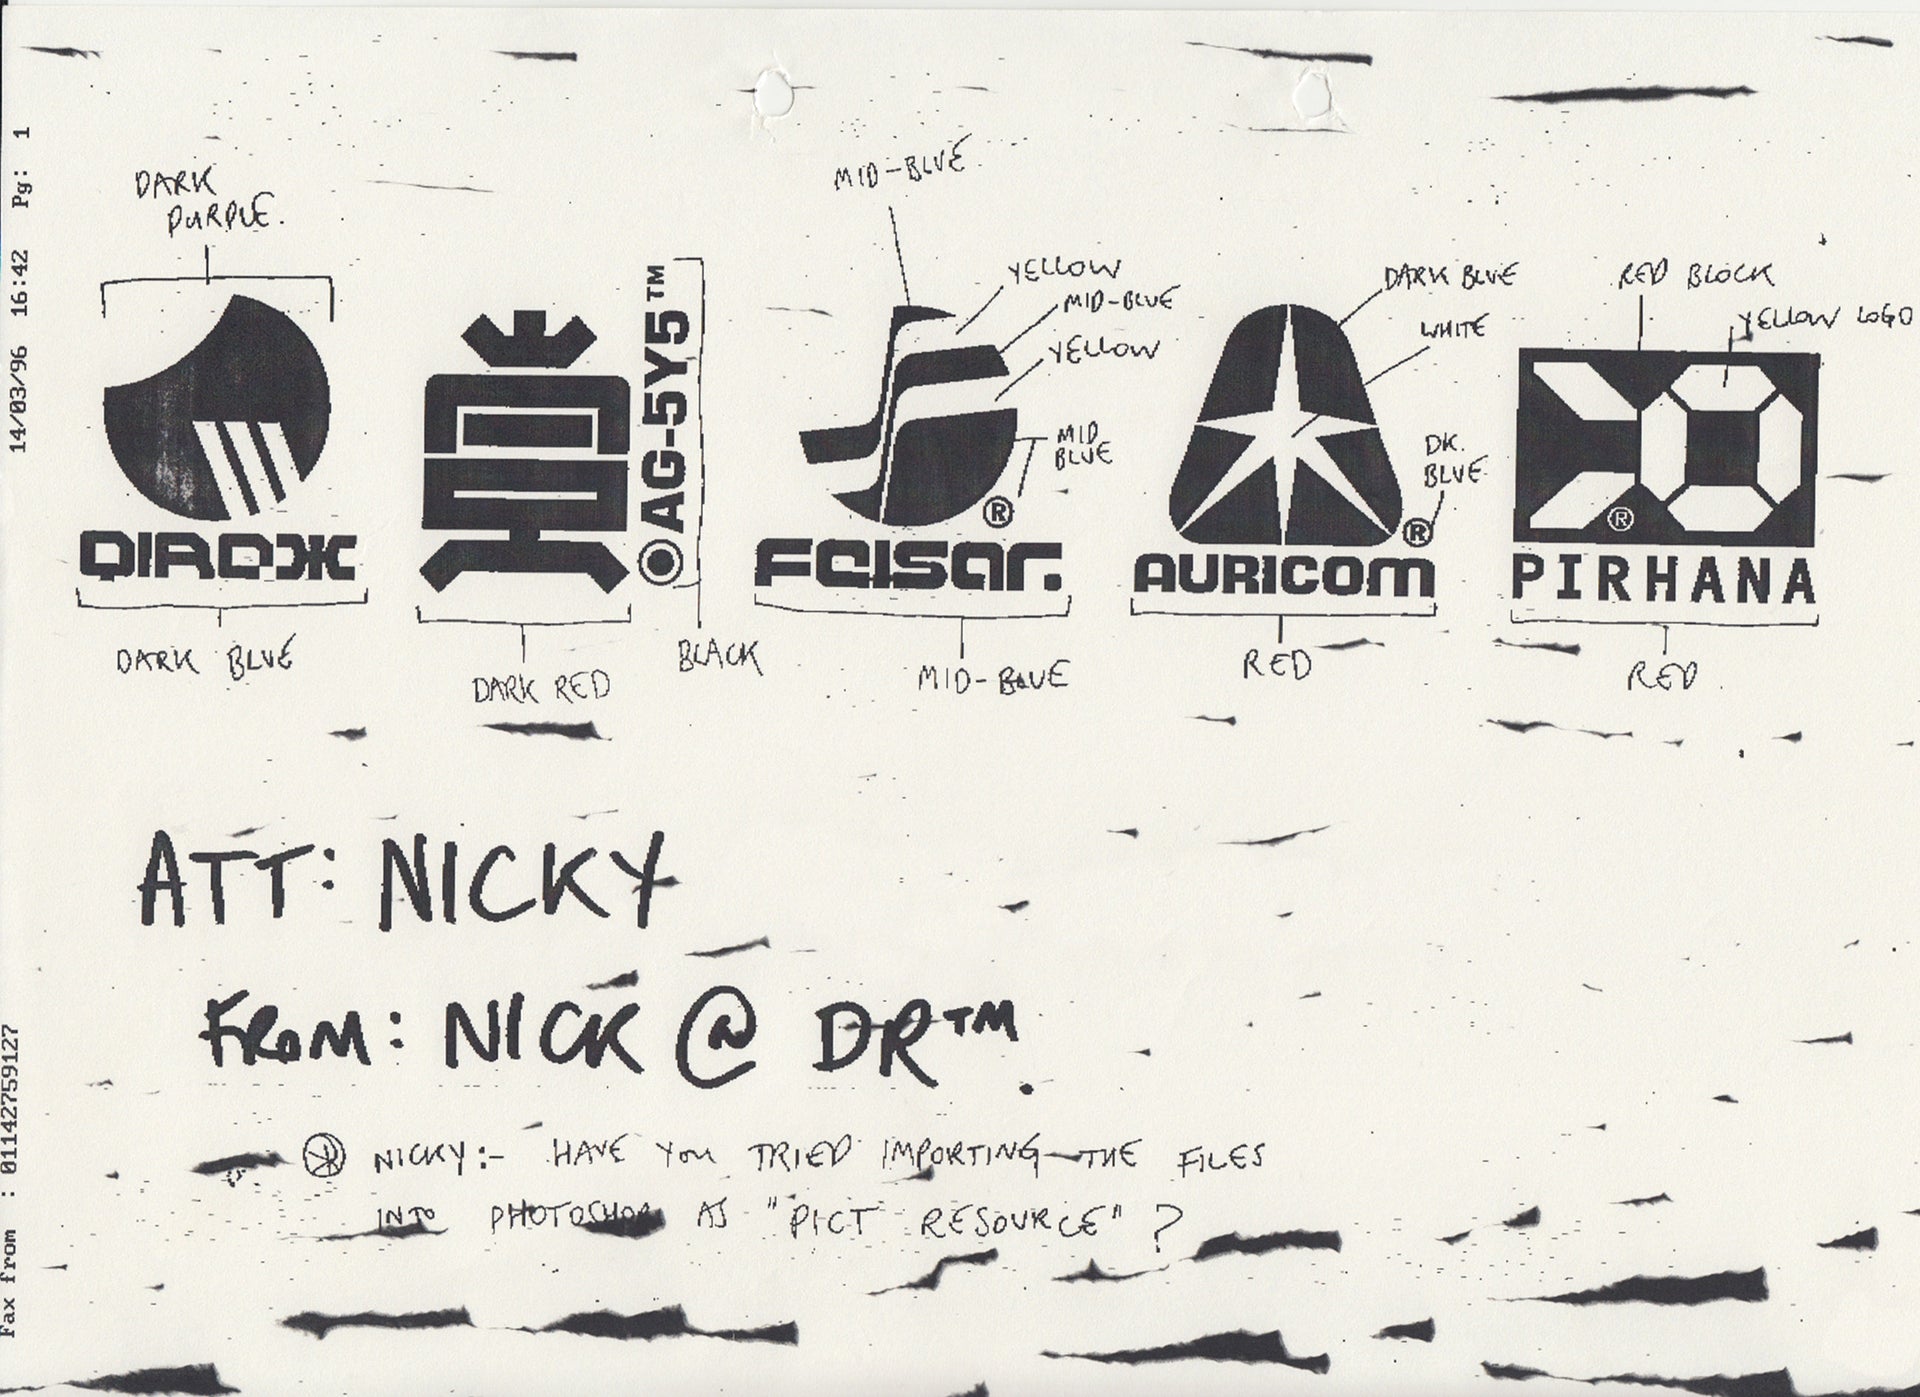 14/03/96 16:42 Pg: 1
Fax from : 01142759127
DARK
PURPLE.
QIREX
DARK BLUE
DARK RED
AG-5Y5™
BLACK
MID-BLUE
YELLOW
MID-BLUE
YELLOW
MID
BLUE
®
FEISAR.
MID-BLUE
DARK BLUE
WHITE
DK.
BLUE
®
AURICOM
RED
RED BLOCK
YELLOW LOGO
®
PIRHANA
RED
ATT: NICKY
FROM: NICK @ DR™.
NICKY:- HAVE YOU TRIED IMPORTING THE FILES
INTO PHOTOSHOP AS "PICT RESOURCE" ?